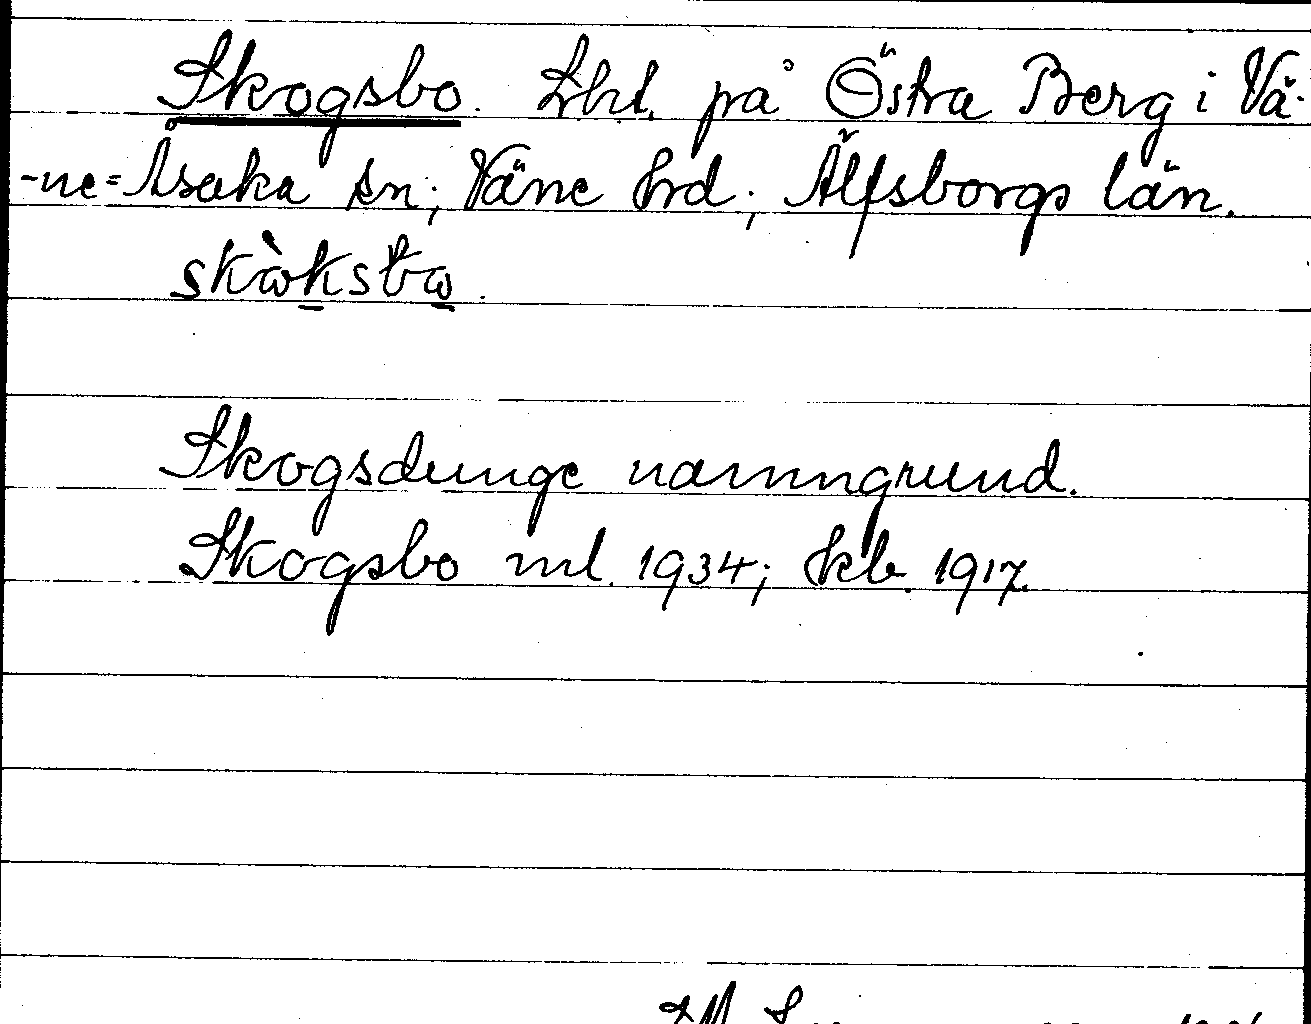 Skogsbo. Lht. på Östra Berg i Vä-
-ne=Åsaka sn; Väne hrd; Älfsborgs län.
skògksbo.
Skogsdunge namngrund.
Skogsbo ml. 1934; Skb. 1917.